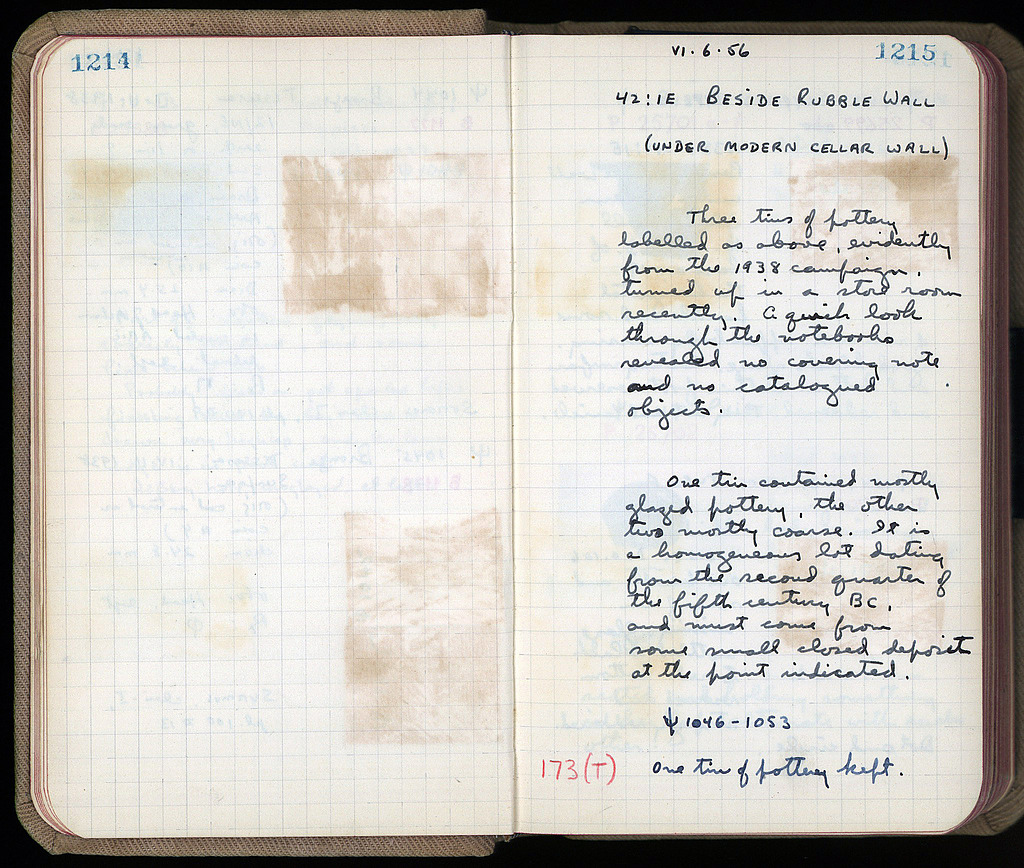 1214
VI.6.56
1215
42:1E BESIDE RUBBLE WALL
(UNDER MODERN CELLAR WALL)
Three tins of pottery
labelled as above, evidently
from the 1938 campaign,
turned up in a store room
recently. A quick look
through the notebooks
revealed no covering note
and no catalogued
objects.
One tin contained mostly
glazed pottery, the other
two mostly coarse. It is
a homogeneous lot dating
from the second quarter of
the fifth century BC,
and must come from
some small closed deposit
at the point indicated.
Ψ 1046-1053
173(T) One tin of pottery kept.